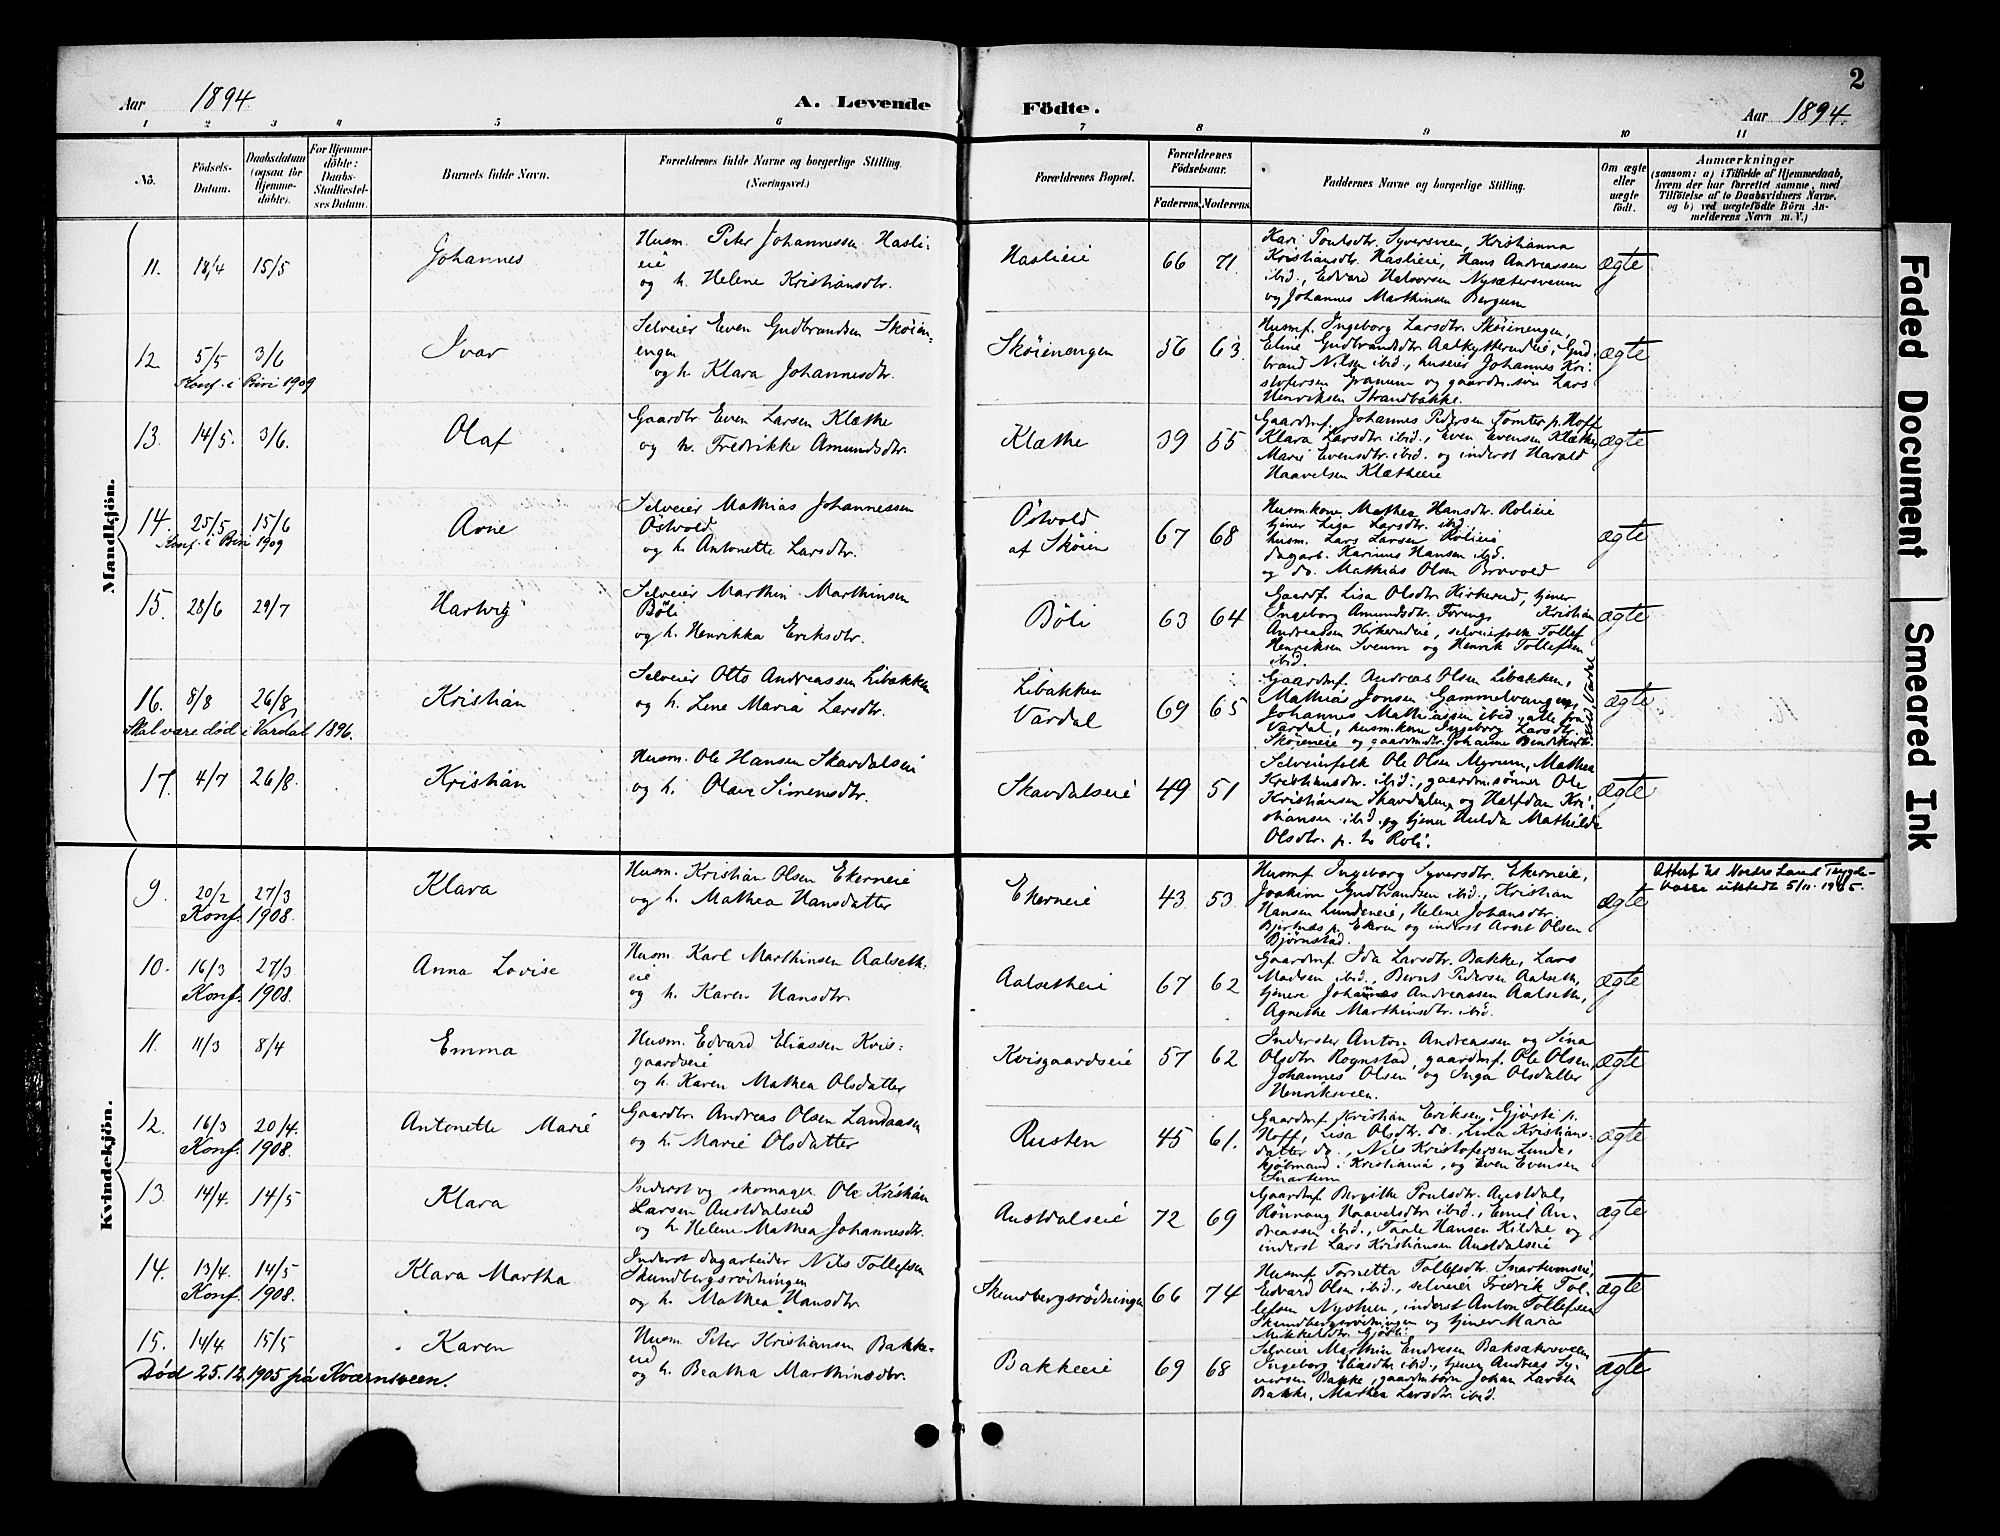 2
Aar 1894.
A. Levende Födte.
Aar 1894.
1 2 3 4 5 6 7 8 9 10 11
Nö.
Födsels-Datum.
Daabsdatum (ogsaa for Hjemme-döbte).
For Hjemme-döbte: Daabs-Stadfæstel-ses Datum.
Barnets fulde Navn.
Forældrenes fulde Navne og borgerlige Stilling. (Næringsvei.)
Forældrenes Bopæl.
Forældrenes Födselsaar.
Faderens. Moderens.
Faddernes Navne og borgerlige Stilling.
Om ægte eller uægte födt.
Anmærkninger
(saasom: a) i Tilfælde af Hjemmedaab,
hvem der har forrettet samme, med
Tilföielse af to Daabsvidners Navne,
og b) ved uægtefödte Börn An-
melderens Navn m. V.)
Mandkjön.
11. 18/4 15/5 Johannes
Husm. Peter Johannessen Hasli-
eie
og h. Helene Kristiansdtr.
Haslieie 66 71
Kari Poulsdtr. Syversveen, Kristianna
Kristiansdtr. Haslieie, Hans Andreassen
ibid., Edvard Halvorsen Nysætersveum
og Johannes Marthinsen Bergum
ægte
12 5/5 3/6 Ivar
Konf. i Biri 1909
Selveier Even Gudbrandsen Skøien-
engen
og h. Klara Johannesdtr.
Skøienengen 56 63
Husmf. Ingeborg Larsdtr. Skøienengen,
Eline Gudbrandsdtr. Aalkytterudeie, Gud-
brand Nilsen ibid., huseier Johannes Kri-
stofersen Granum og gaardm.søn Lars
Henriksen Strandbakke.
ægte
13. 14/5. 3/6. Olaf
Gaardbr. Even Larsen Klæthe
og h. Fredrikke Amundsdtr.
Klæthe 39 55
Gaardmf. Johannes Pedersen Tomter p. Hoff
Klara Larsdtr. ibid., Even Evensen Klæthe,
Marie Evensdtr. ibid. og inderst Harald
Haavelsen Klætheeie
ægte
14. 25/5 15/6 Arne
Konf. i Biri 1909
Selveier Mathias Johannessen
Östvold
og h. Antonette Larsdtr.
Östvold
af Skøien 67 68
Husm.kone Mathea Hansdtr. Rolieie
tjener Lisa Larsdtr. ibid.
husm. Lars Larsen Rolieie
dagarb. Karinus Hansen ibid.
og do. Mathias Olsen Brovold
ægte
15. 28/6 29/7 Hartvig
Selveier Marthin Marthinsen
Böli
og h. Henrikka Eriksdtr.
Böli 63 64
Gaardf. Lisa Olsdtr. Kirkerud, tjener
Ingeborg Amundsdtr. Foreng, Kristian
Andreassen Kirkerudeie, selveierfolk Tollef
Henriksen Sveum og Henrik Tollefsen
ibid.
ægte
16. 8/8 26/8 Kristian
Skal være död i Vardal 1896.
Selveier Otto Andreassen Libakken
og h. Lene Maria Larsdtr.
Libakken
Vardal 69 65
Gaardmf. Andreas Olsen Libakken,
Mathias Jonsen Gammelvangen,
Johannes Mathiassen ibid., alle fra
Vardal, husm.kone Ingeborg Larsdtr.
Skøieneie og gaardmdtr. Johanne Bendiksdtr.
ægte
17. 4/7 26/8. Kristian
Husm. Ole Hansen Skavdalseie
og h. Olave Simensdtr.
Skavdalseie 49 51
Selveierfolk Ole Olsen Myrum, Mathea
Kristiansdtr. ibid., gaardm.sønner Ole
Kristiansen Skavdalen og Halfdan Kri-
stiansen ibid. og tjener Hulda Mathilde
Olsdtr. p. t. Roli.
ægte
Kvindekjön.
9. 20/2 27/3 Klara
Konf. 1908.
Husm. Kristian Olsen Ekerneie
og h. Mathea Hansdatter
Ekerneie 43 53
Husmf. Ingeborg Syversdtr. Ekerneie,
Joakim Gudbrandsen ibid., Kristian
Hansen Lundeneie, Helene Johansdtr.
Bjertnæs p. Ekern og inderst Arnt Olsen
Bjørnstad.
ægte
Attest til Nordre Land Trygde-
kasse utstedt 5/11. 1965.
10. 16/3 27/3 Anna Lovise
Konf. 1908.
Husm. Karl Marthinsen Aalseth-
eie
og h. Karen Hansdtr.
Aalsetheie 67 62
Gaardmf. Ida Larsdtr. Bakke, Lars
Madsen ibid., Bernt Pedersen Aalseth,
tjenere Johannes Andreassen Aalseth,
Agnethe Marthinsdtr. ibid.
ægte
11. 11/3 8/4 Emma
Husm. Edvard Eliassen Kvis-
gaardseie
og h. Karen Mathea Olsdatter
Kvisgaardseie 57 62
Inderster Anton Andreassen og Sina
Olsdtr. Rognstad, gaardmf. Ole Olsen,
Johannes Olsen og Inga Olsdatter
Henriksveen.
ægte
12. 16/3 20/4. Antonette Marie
Konf. 1908.
Gaardbr. Andreas Olsen Landaasen
og h. Marie Olsdatter
Rusten 45 61.
Gaardmf. Kristian Eriksen, Gjösli p.
Hoff, Lisa Olsdtr. do., Lina Kristians-
datter do., Nils Kristofersen Lunde,
kjöbmand i Kristiania, og Even Evensen
Snartum
ægte
13. 14/4. 14/5 Klara
Inderst og skomager Ole Kristian
Larsen Austdalseie
og h. Helene Mathea Johannesdtr.
Austdalseie 72 69
Gaardmf. Bergithe Poulsdtr. Austdal,
Rønnaug Haavelsdtr ibid., Emil An-
dreassen ibid., Taale Hansen Kildal og
inderst Lars Kristiansen Austdalseie
ægte
14. 13/4. 14/5 Klara Martha
Konf. 1908.
Inderst dagarbeider Nils Tollefsen
Skundbergsrödningen
og h. Mathea Hansdtr
Skundbergsrödningen 66 74
Husmf. Tornetta Tollefsdtr. Snartumseie,
Edvard Olsen ibid., selveier Fredrik Tol-
lefsen Nystuen, inderst Anton Tollefsen
Skundbergsrödningen og tjener Marias
Mikkelsdtr. Gjösli.
ægte
15. 14/4 15/5 Karen
Död 25.12.1905 på Kværnsveen.
Husm. Peter Kristiansen Bakke-
eie
og h. Beatha Marthinsdtr.
Bakkeeie 69 68
Selveier Marthin Endresen Baksakersveen
Ingeborg Eliasdtr ibid., tjener Andreas Sy-
versen Bakke, gaardm.børn Johan Larsen
Bakke, Mathea Larsdtr. ibid.
ægte
Faded Document
Smeared Ink